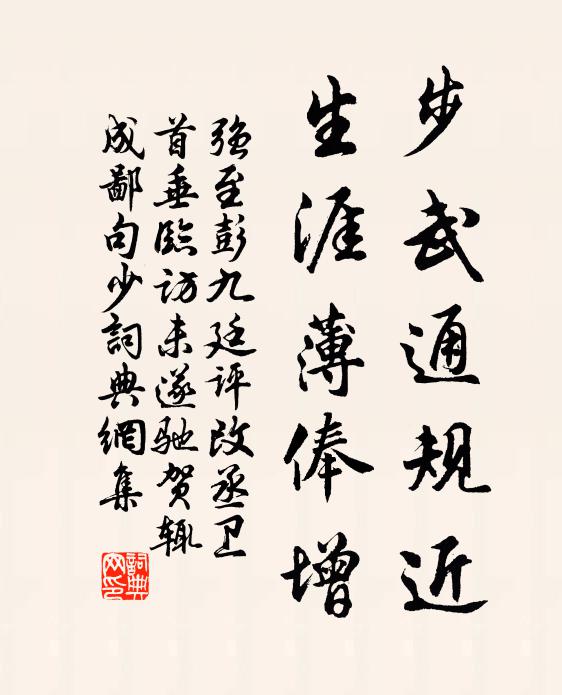 步武通規近
生涯薄俸增
強至彭九廷評改丞卫
首垂臨訪未遂驰贺辄
成鄙句少詞典網集
詞典
网印